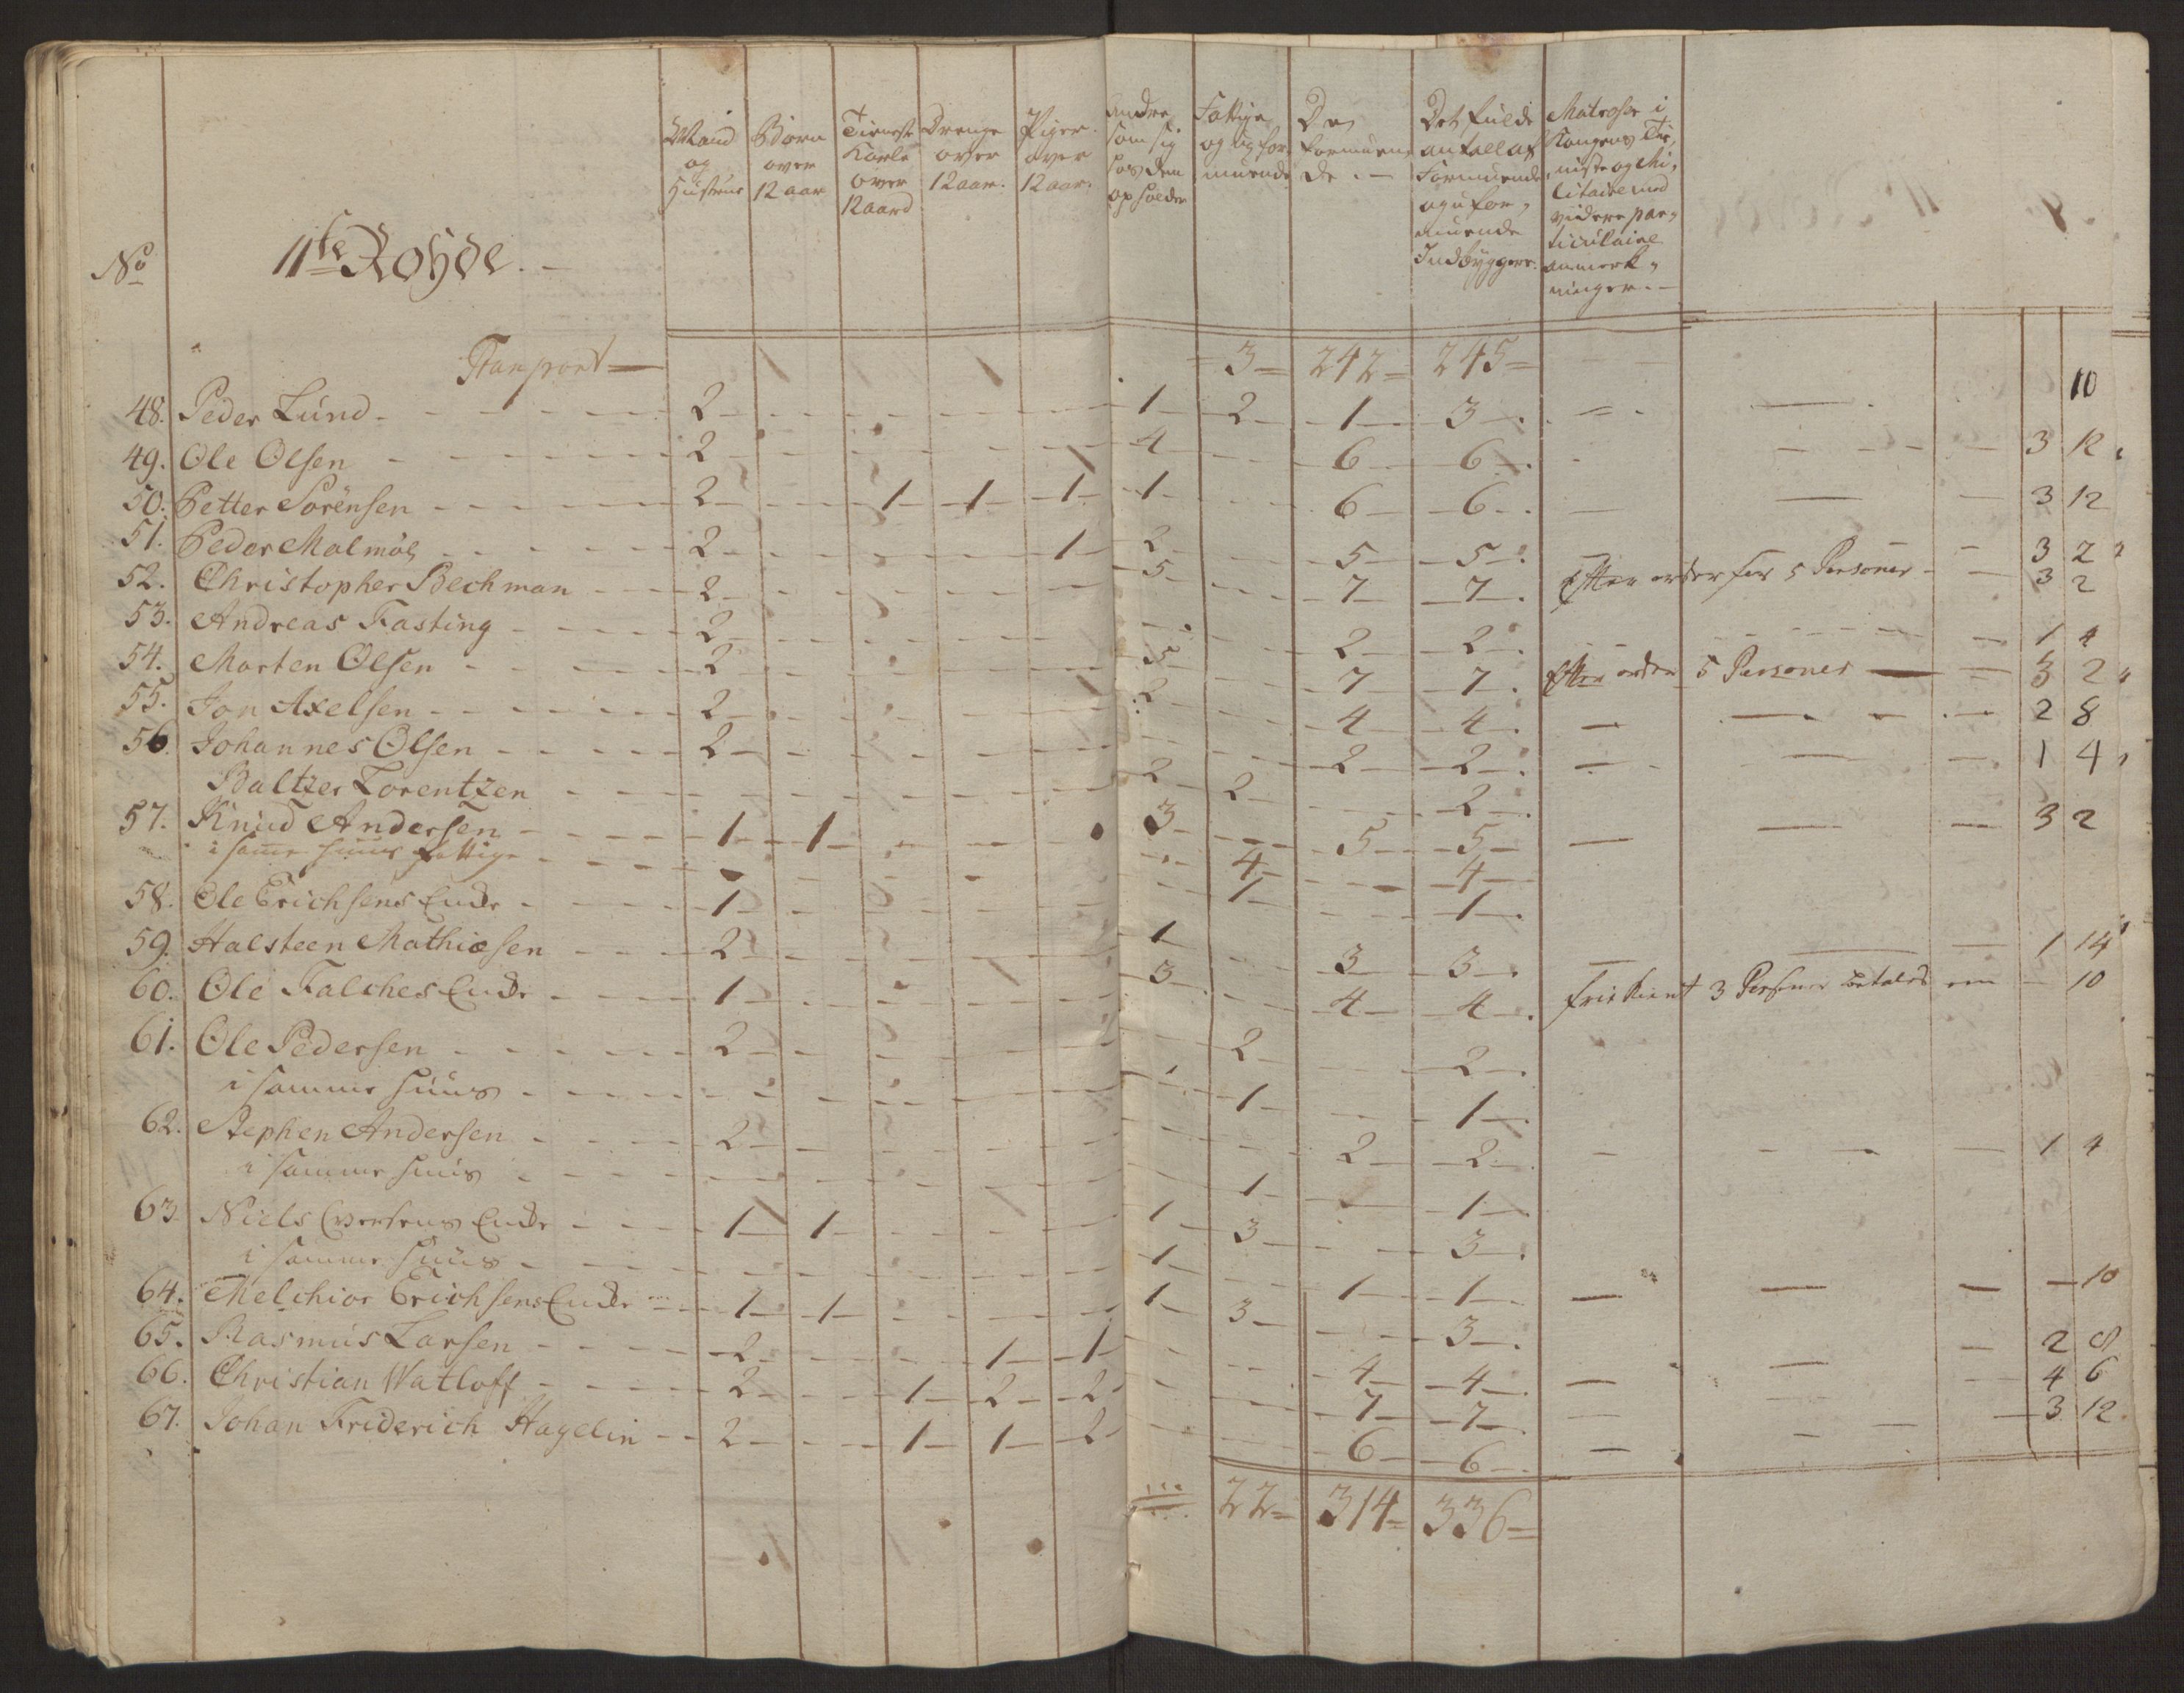 No
11te Rohde.
Mand og Hustrue
Børn over 12 aar
Tieneste Karle over 12 aar
Drenge over 12 aar.
Piger over 12 aar.
Andre som sig hos dem opholder
Fattige og uformuende
De formuende.
Det fulde antall af Formuende og uformuende Indbyggere.
Matroser i Kongens Tieniste og Militaire med videre particulaire anmerkninger.
Transport 3 242 245
10
48. Peder Lund 2 1 2 1 3
49. Ole Olsen 2 4 6 6 3 12
50. Petter Sørensen 2 1 1 1 1 6 6 3 12
51. Peder Malmøe 2 1 2 5 5 3 2
52. Christopher Bechman 2 5 7 7 Efter order for 5 Personer 3 2
53. Andreas Fasting 2 2 2 1 4
54. Morten Olsen 2 5 7 7 Efter order 5 Personer 3 2
55. Jon Axelsen 2 2 4 4 2 8
56. Johannes Olsen 2 2 2 1 4
Baltzer Lorentzen 2 2 2
57. Knud Andersen 1 1 3 5 5 3 2
i samme huus fattige 4 4
58. Ole Erichsens Encke 1 1 1
59. Halsteen Mathiæsen 2 1 3 3 1 14
60. Ole Falches Encke 1 3 4 4 3 Personer betaler 10
61. Ole Pedersen 2 2 2
i samme huus 1 1
62. Stephen Andersen 2 2 2 1 4
i samme huus 1 1
63. Niels Evertens Encke 1 1 1 3 3
i samme huus 1 1 1 10
64. Melchior Erichsens Encke 1 1 1 3 3
65. Rasmus Larsen 2 1 1 4 4 2 8
66. Christian Watloff 2 1 2 2 7 7 4 6
67. Johan Friderich Hagelin 2 1 1 2 6 6 3 12
22 314 336